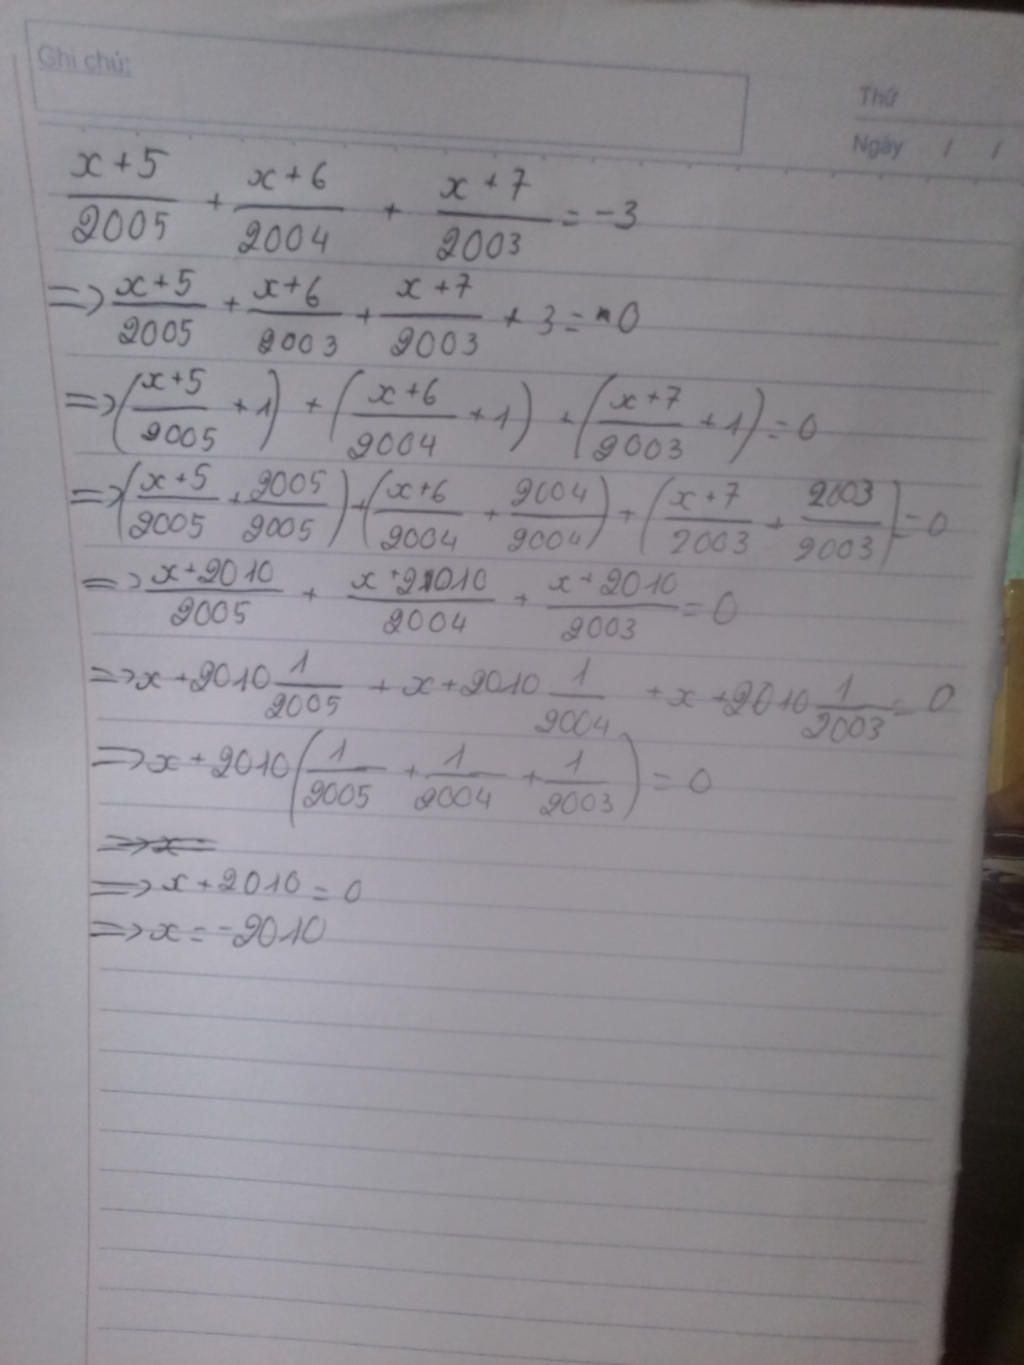 Ghi chú:
Thứ
Ngày / /
x+5/2005 + x+6/2004 + x+7/2003 = -3
=> x+5/2005 + x+6/2003 + x+7/2003 + 3 = 0
=> (x+5/2005 + 1) + (x+6/2004 + 1) + (x+7/2003 + 1) = 0
=> (x+5/2005 + 2005/2005) + (x+6/2004 + 2004/2004) + (x+7/2003 + 2003/2003) = 0
=> x+2010/2005 + x+2010/2004 + x+2010/2003 = 0
=> x+2010 1/2005 + x+2010 1/2004 + x+2010 1/2003 = 0
=> x+2010 (1/2005 + 1/2004 + 1/2003) = 0
=> x=
=> x+2010 = 0
=> x = -2010